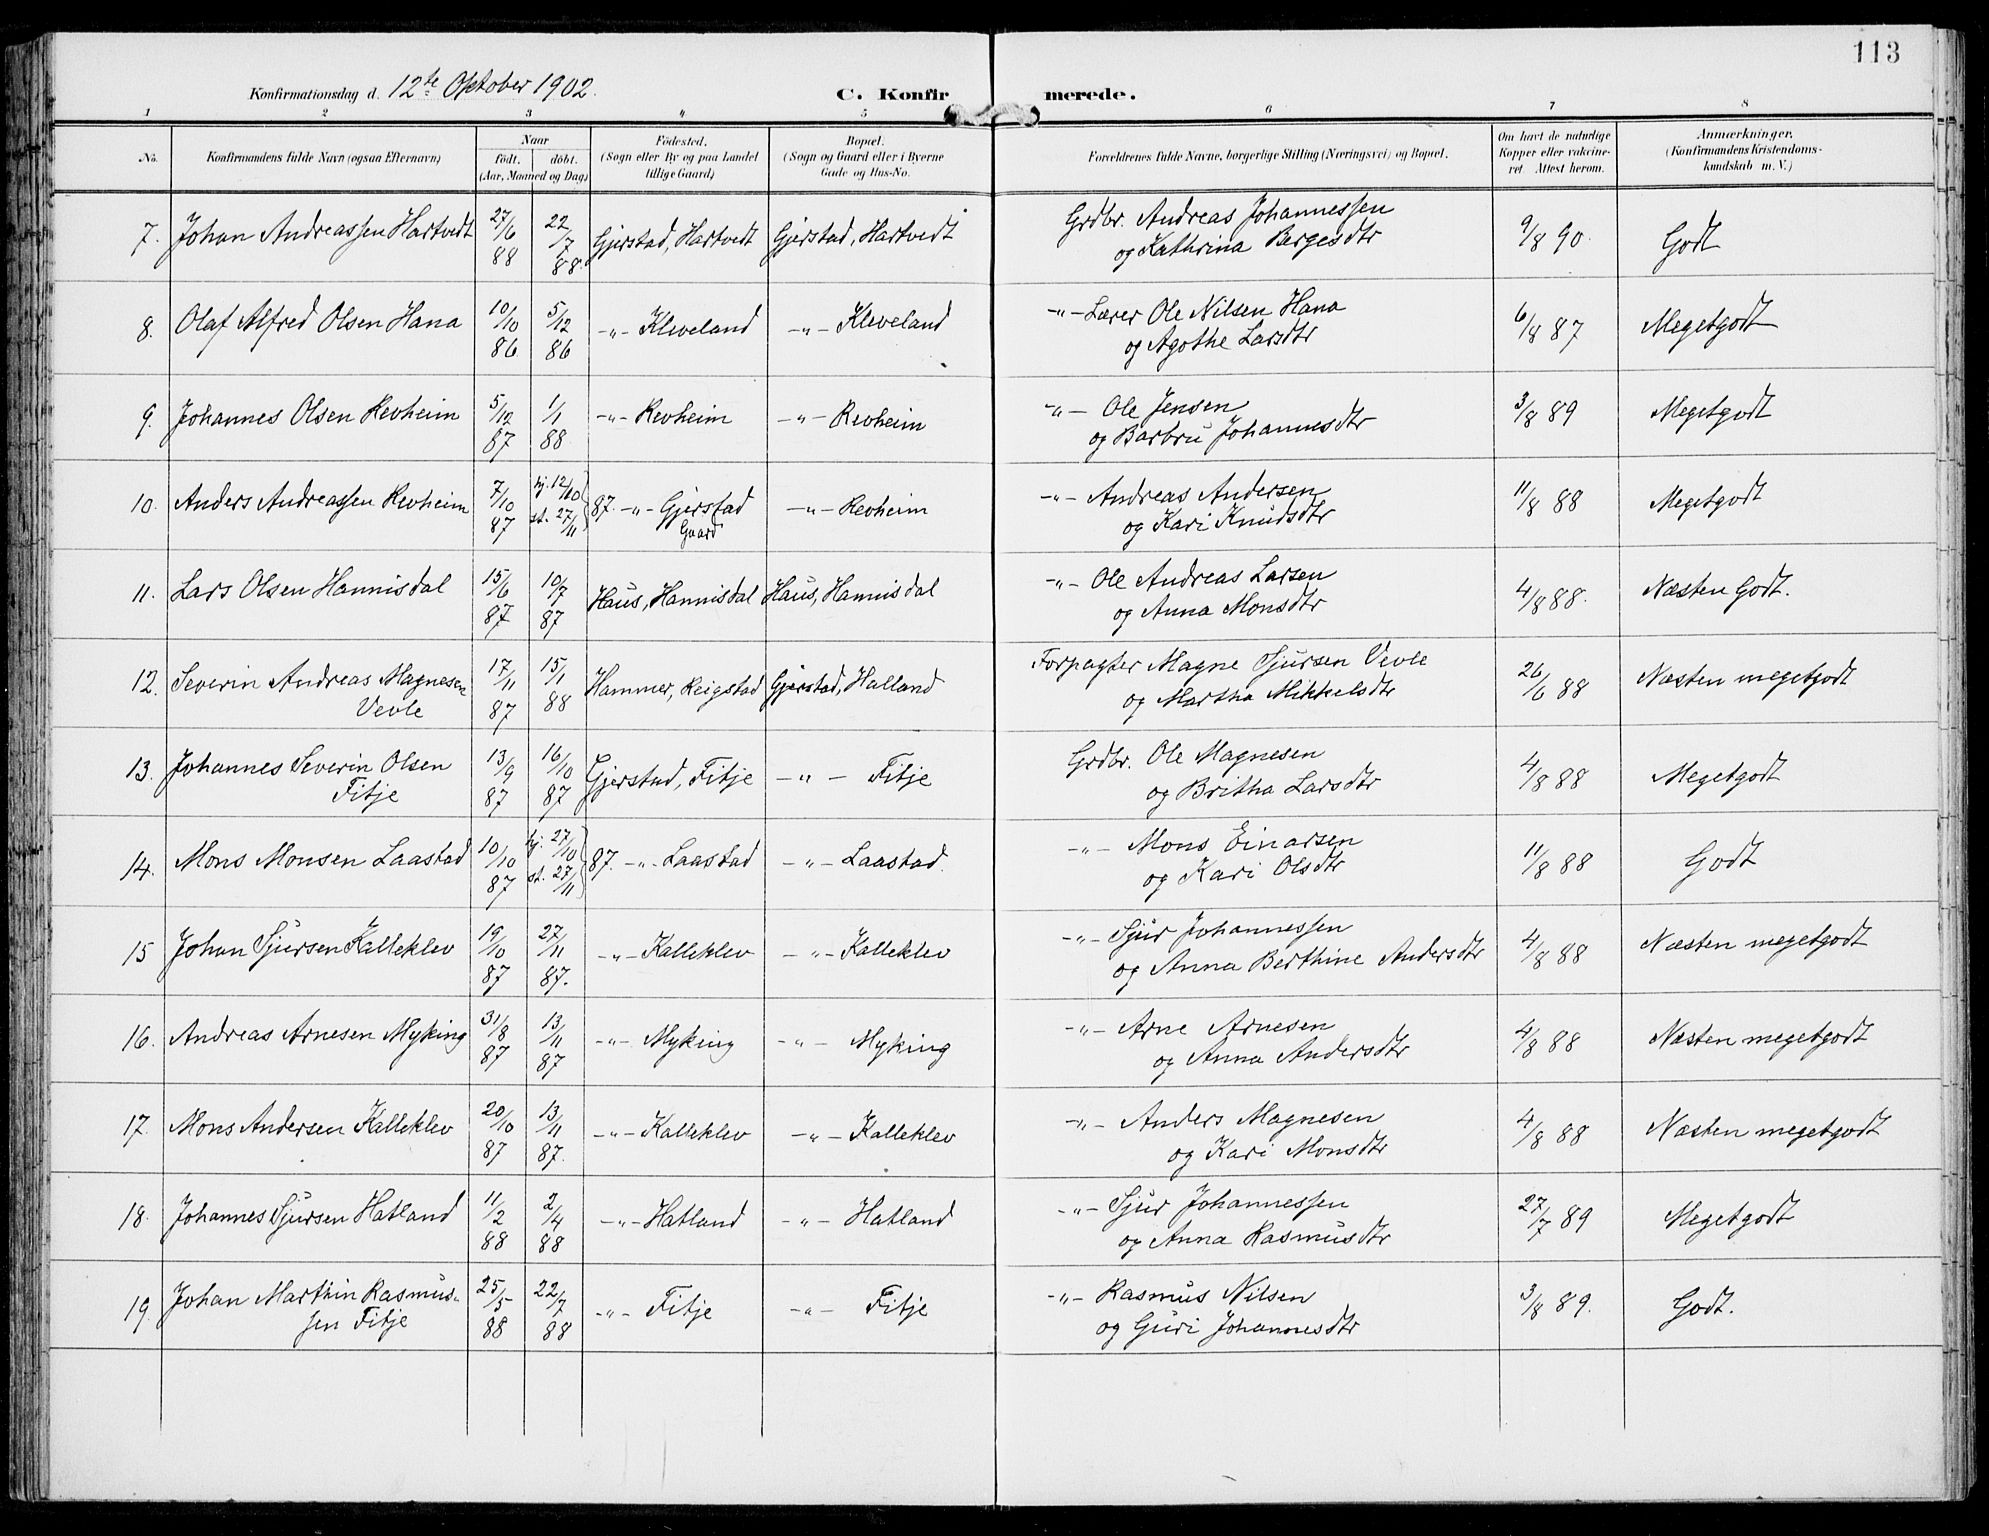 113
Konfirmationsdag d. 12te Oktober 1902.
C. Konfirmerede.
1 2 3 4 5 6 7 8
No. | Konfirmandens fulde Navn (ogsaa Efternavn) | Naar födt. döbt. (Aar, Maaned og Dag) | Födested. (Sogn eller By og paa Landet tillige Gaard) | Bopæl. (Sogn og Gaard eller i Byerne Gade og Hus-No. | Forældrenes fulde Navne, borgerlige Stilling (Næringsvei) og Bopæl. | Om havt de naturlige Kopper eller vakcineret. Attest herom. | Anmærkninger. (Konfirmandens Kristendomskundskab m. V.)
7. Johan Andreassen Hartvedt | 27/6 88 | 22/7 88. | Gjerstad, Hartvedt | Gjerstad, Hartvedt | Grdbr. Andreas Johannessen
og Kathrina Bergesdtr | 9/8 90. | Godt
8. Olaf Alfred Olsen Hana | 10/10 86 | 5/12 86 | -"- Kleveland | -"- Kleveland | -"- Lærer Ole Nilsen Hana
og Agothe Larsdtr | 6/8 87 | Megetgodt
9. Johannes Olsen Revheim | 5/12 87 | 1/1 88 | -"- Revheim | -"- Revheim | -"- Ole Jensen
og Barbru Johannesdtr | 3/8 89 | Megetgodt
10. Anders Andreassen Revheim | 7/10 87 | hj. 12/10 st. 27/11 } 87. | -"- Gjerstad Gaard | -"- Revheim | -"- Andreas Andersen
og Kari Knudsdtr | 11/8 88 | Megetgodt
11. Lars Olsen Hannisdal | 15/6 87 | 10/7 87 | Haus, Hannisdal | Haus, Hannisdal | -"- Ole Andreas Larsen
og Anna Monsdtr | 4/8 88. | Næsten Godt.
12. Severin Andreas Magnesen
Vevle | 17/11 87 | 15/1 88 | Hammer, Reigstad | Gjerstad, Halland | Forpagter Magne Sjursen Vevle
og Martha Mikkelsdtr | 26/6 88 | Næsten megetgodt
13. Johannes Severin Olsen
Fitje | 13/9 87 | 16/10 87 | Gjerstad, Fitje | -"- Fitje | Grdbr. Ole Magnesen
og Britha Larsdtr | 4/8 88 | Megetgodt
14. Mons Monsen Laastad | 10/10 87 | hj. 27/10 st. 27/11 } 87. | -"- Laastad | -"- Laastad. | -"- Mons Einarsen
og Kari Olsdtr | 11/8 88 | Godt
15 Johan Sjursen Kalleklev | 19/10 87 | 27/11 87. | -"- Kalleklev | -"- Kalleklev | -"- Sjur Johannessen
og Anna Berthine Andersdtr | 4/8 88 | Næsten megetgodt
16. Andreas Arnesen Myking | 31/8 87 | 13/11 87 | -"- Myking | -"- Myking | -"- Arne Arnesen
og Anna Andersdtr | 4/8 88 | Næsten megetgodt
17. Mons Andersen Kalleklev | 20/10 87 | 13/11 87. | -"- Kalleklev | -"- Kalleklev | -"- Anders Magnesen
og Kari Monsdtr | 4/8 88 | Næsten megetgodt
18. Johannes Sjursen Hatland | 11/2 88 | 2/4 88 | -"- Hatland | -"- Hatland | -"- Sjur Johannessen
og Anna Rasmusdtr | 27/7 89 | Megetgodt
19. Johan Marthin Rasmus-
sen Fitje | 25/5 88 | 22/7 88 | -"- Fitje | -"- Fitje | -"- Rasmus Nilsen
og Guri Johannesdtr | 3/8 89. | Godt.